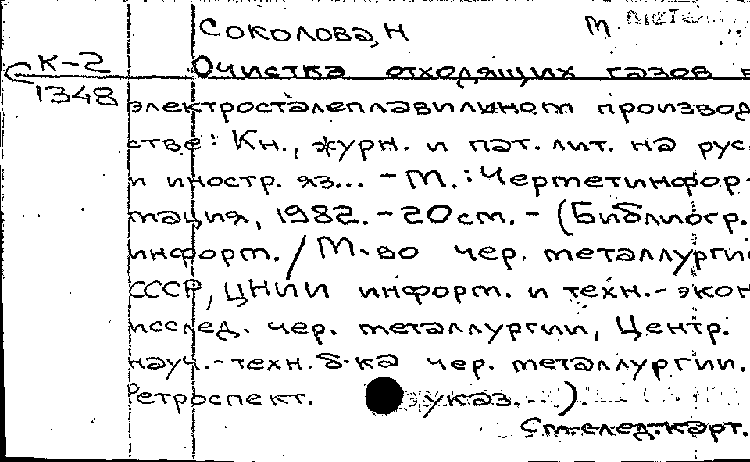 Соколова, Н М.
К-2 Очистка отходящих газов в
1348 электросталеплавильном производ
стве: Кн., журн. и пат. лит. на рус.
и иностр. яз... - М.: Черметинфор-
мация, 1982. - 20 см. - (Библиогр.
информ. / М-во чер. металлургии
СССР, ЦНИИ информ. и техн.-экон
исслед. чер. металлургии, Центр.
науч.-техн. б-ка чер. металлургии.
Ретроспект. указ. ).
См.след.карт.